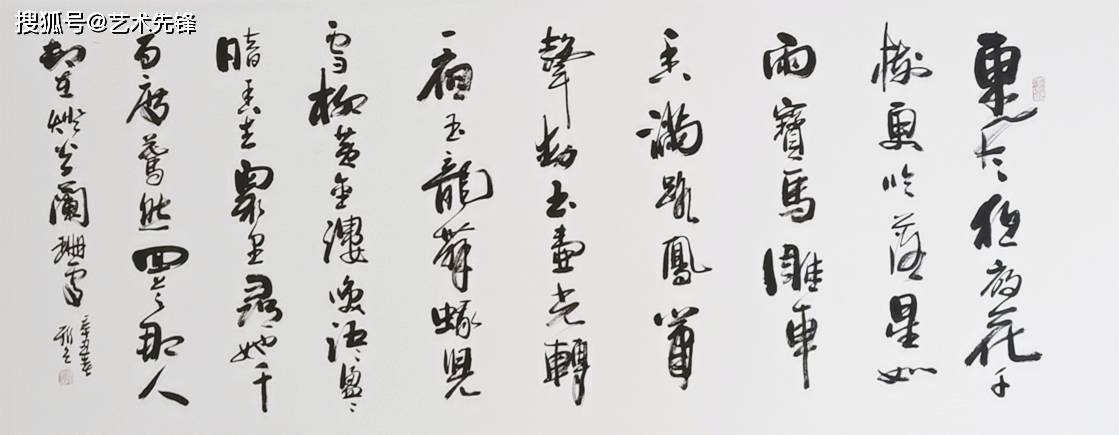 搜狐号@艺术先锋
東风夜放花千
樹更吹落星如
雨寶馬雕車
香滿路鳳簫
聲動玉壺光轉
一夜玉龍舞蛾兒
雪柳黄金縷咲語盈盈
暗香去眾里尋她千
百度驀然回首那人
却在燈火闌珊處
辛丑春